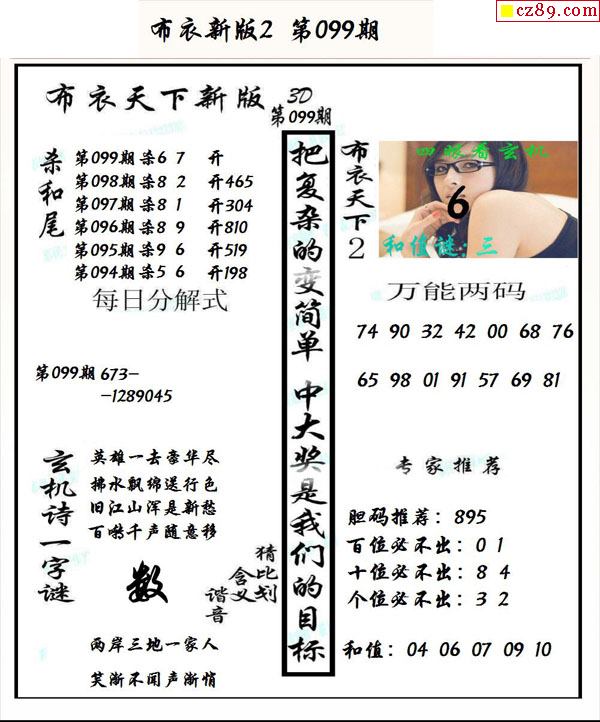 cz89.com
布衣新版2 第099期
布衣天下新版 3D
第099期
杀和尾
第099期杀6 7 开
第098期杀8 2 开465
第097期杀8 1 开304
第096期杀8 9 开810
第095期杀9 6 开519
第094期杀5 6 开198
每日分解式
第099期 673-
-1289045
玄机诗一字谜
英雄一去豪华尽
拂水飘绵送行色
旧江山浑是新愁
百啭千声随意移
数
猜比划
含义
谐音
两岸三地一家人
笑渐不闻声渐悄
把复杂的变简单 中大奖是我们的目标
布衣天下2
四眼看玄机
6
和值谜:三
万能两码
74 90 32 42 00 68 76
65 98 01 91 57 69 81
专家推荐
胆码推荐：895
百位必不出：0 1
十位必不出：8 4
个位必不出：3 2
和值：04 06 07 09 10